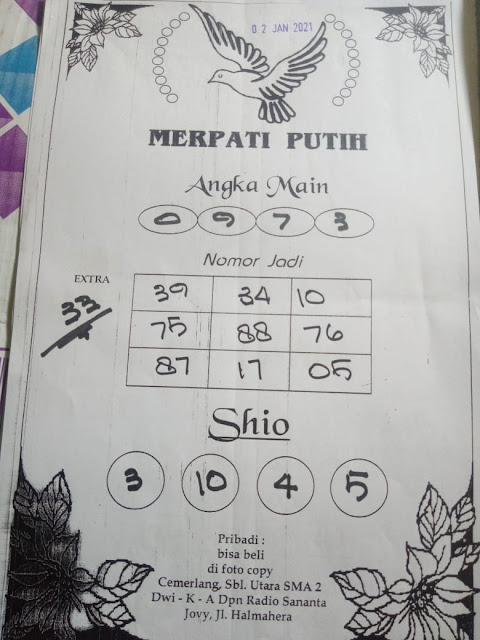 02 JAN 2021
MERPATI PUTIH
Angka Main
0 9 7 3
Nomor Jadi
EXTRA
33
39 34 10
75 88 76
87 17 05
Shio
3 10 4 5
Pribadi :
bisa beli
di foto copy
Cemerlang, Sbl. Utara SMA 2
Dwi - K - A Dpn Radio Sananta
Jovy, Jl. Halmahera